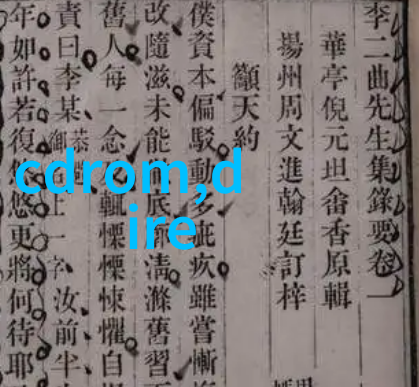 李二曲先生集錄要卷一
華亭倪元坦畬香原輯
揚州周文進翰廷訂梓
籲天約
僕資本偏駁動多疵疚雖嘗慚
改隨滋未能底清滌舊習
舊人每一念輒慄慄悚懼自
責曰李某恭御上一字汝前半
年如許若復悠悠更將何待耶
cdrom,d
ire